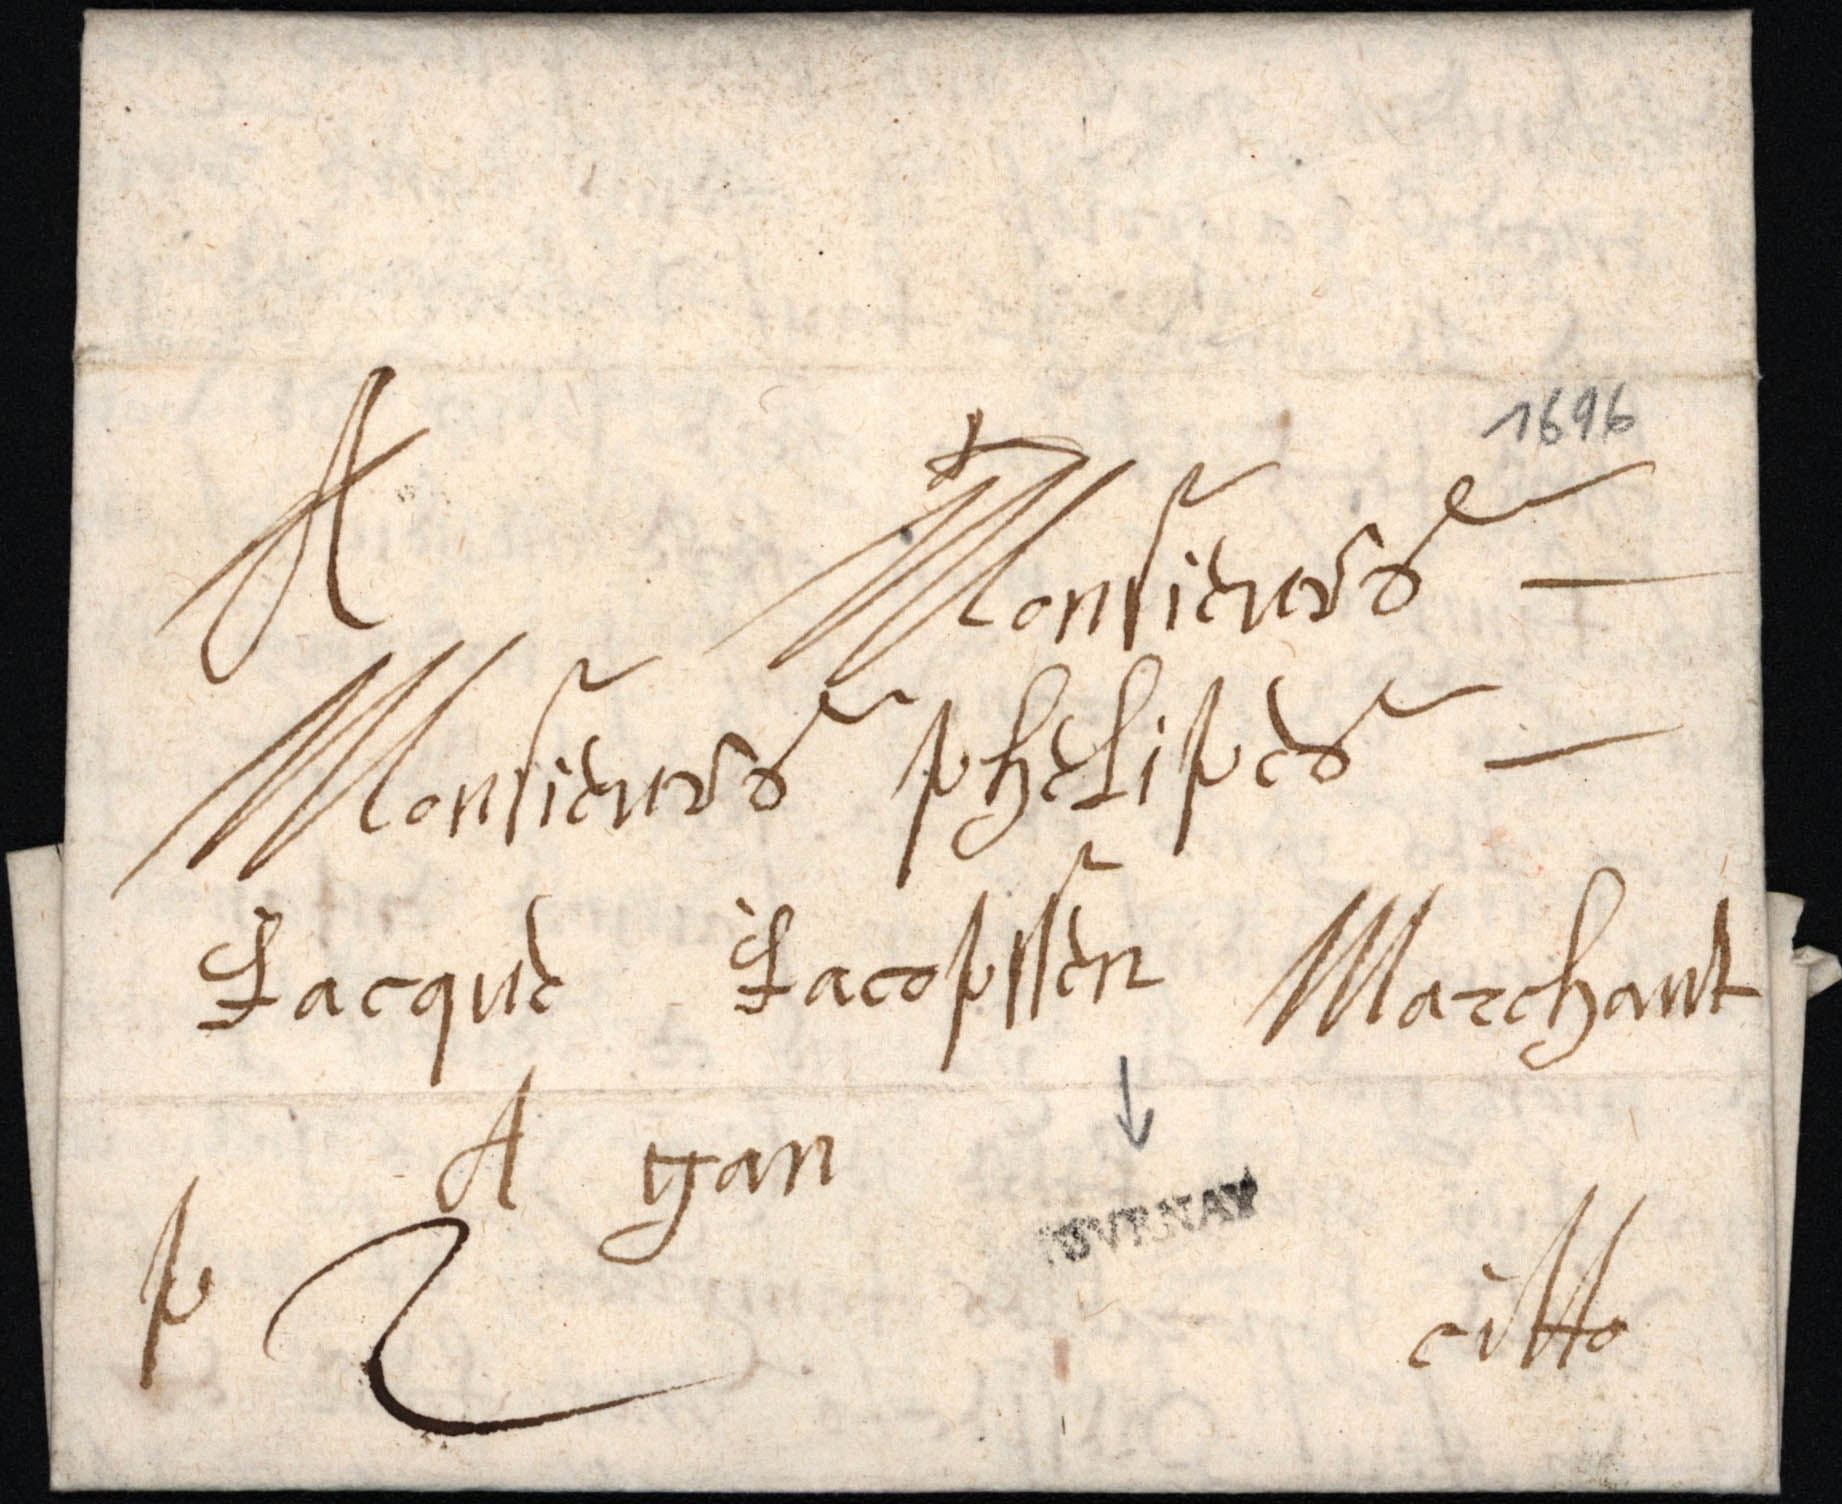 1696
A Monsieurs
Monsieurs phelipes
Jacque Jacopssen Marchant
A gan
TOVRNAY
p 2 citto